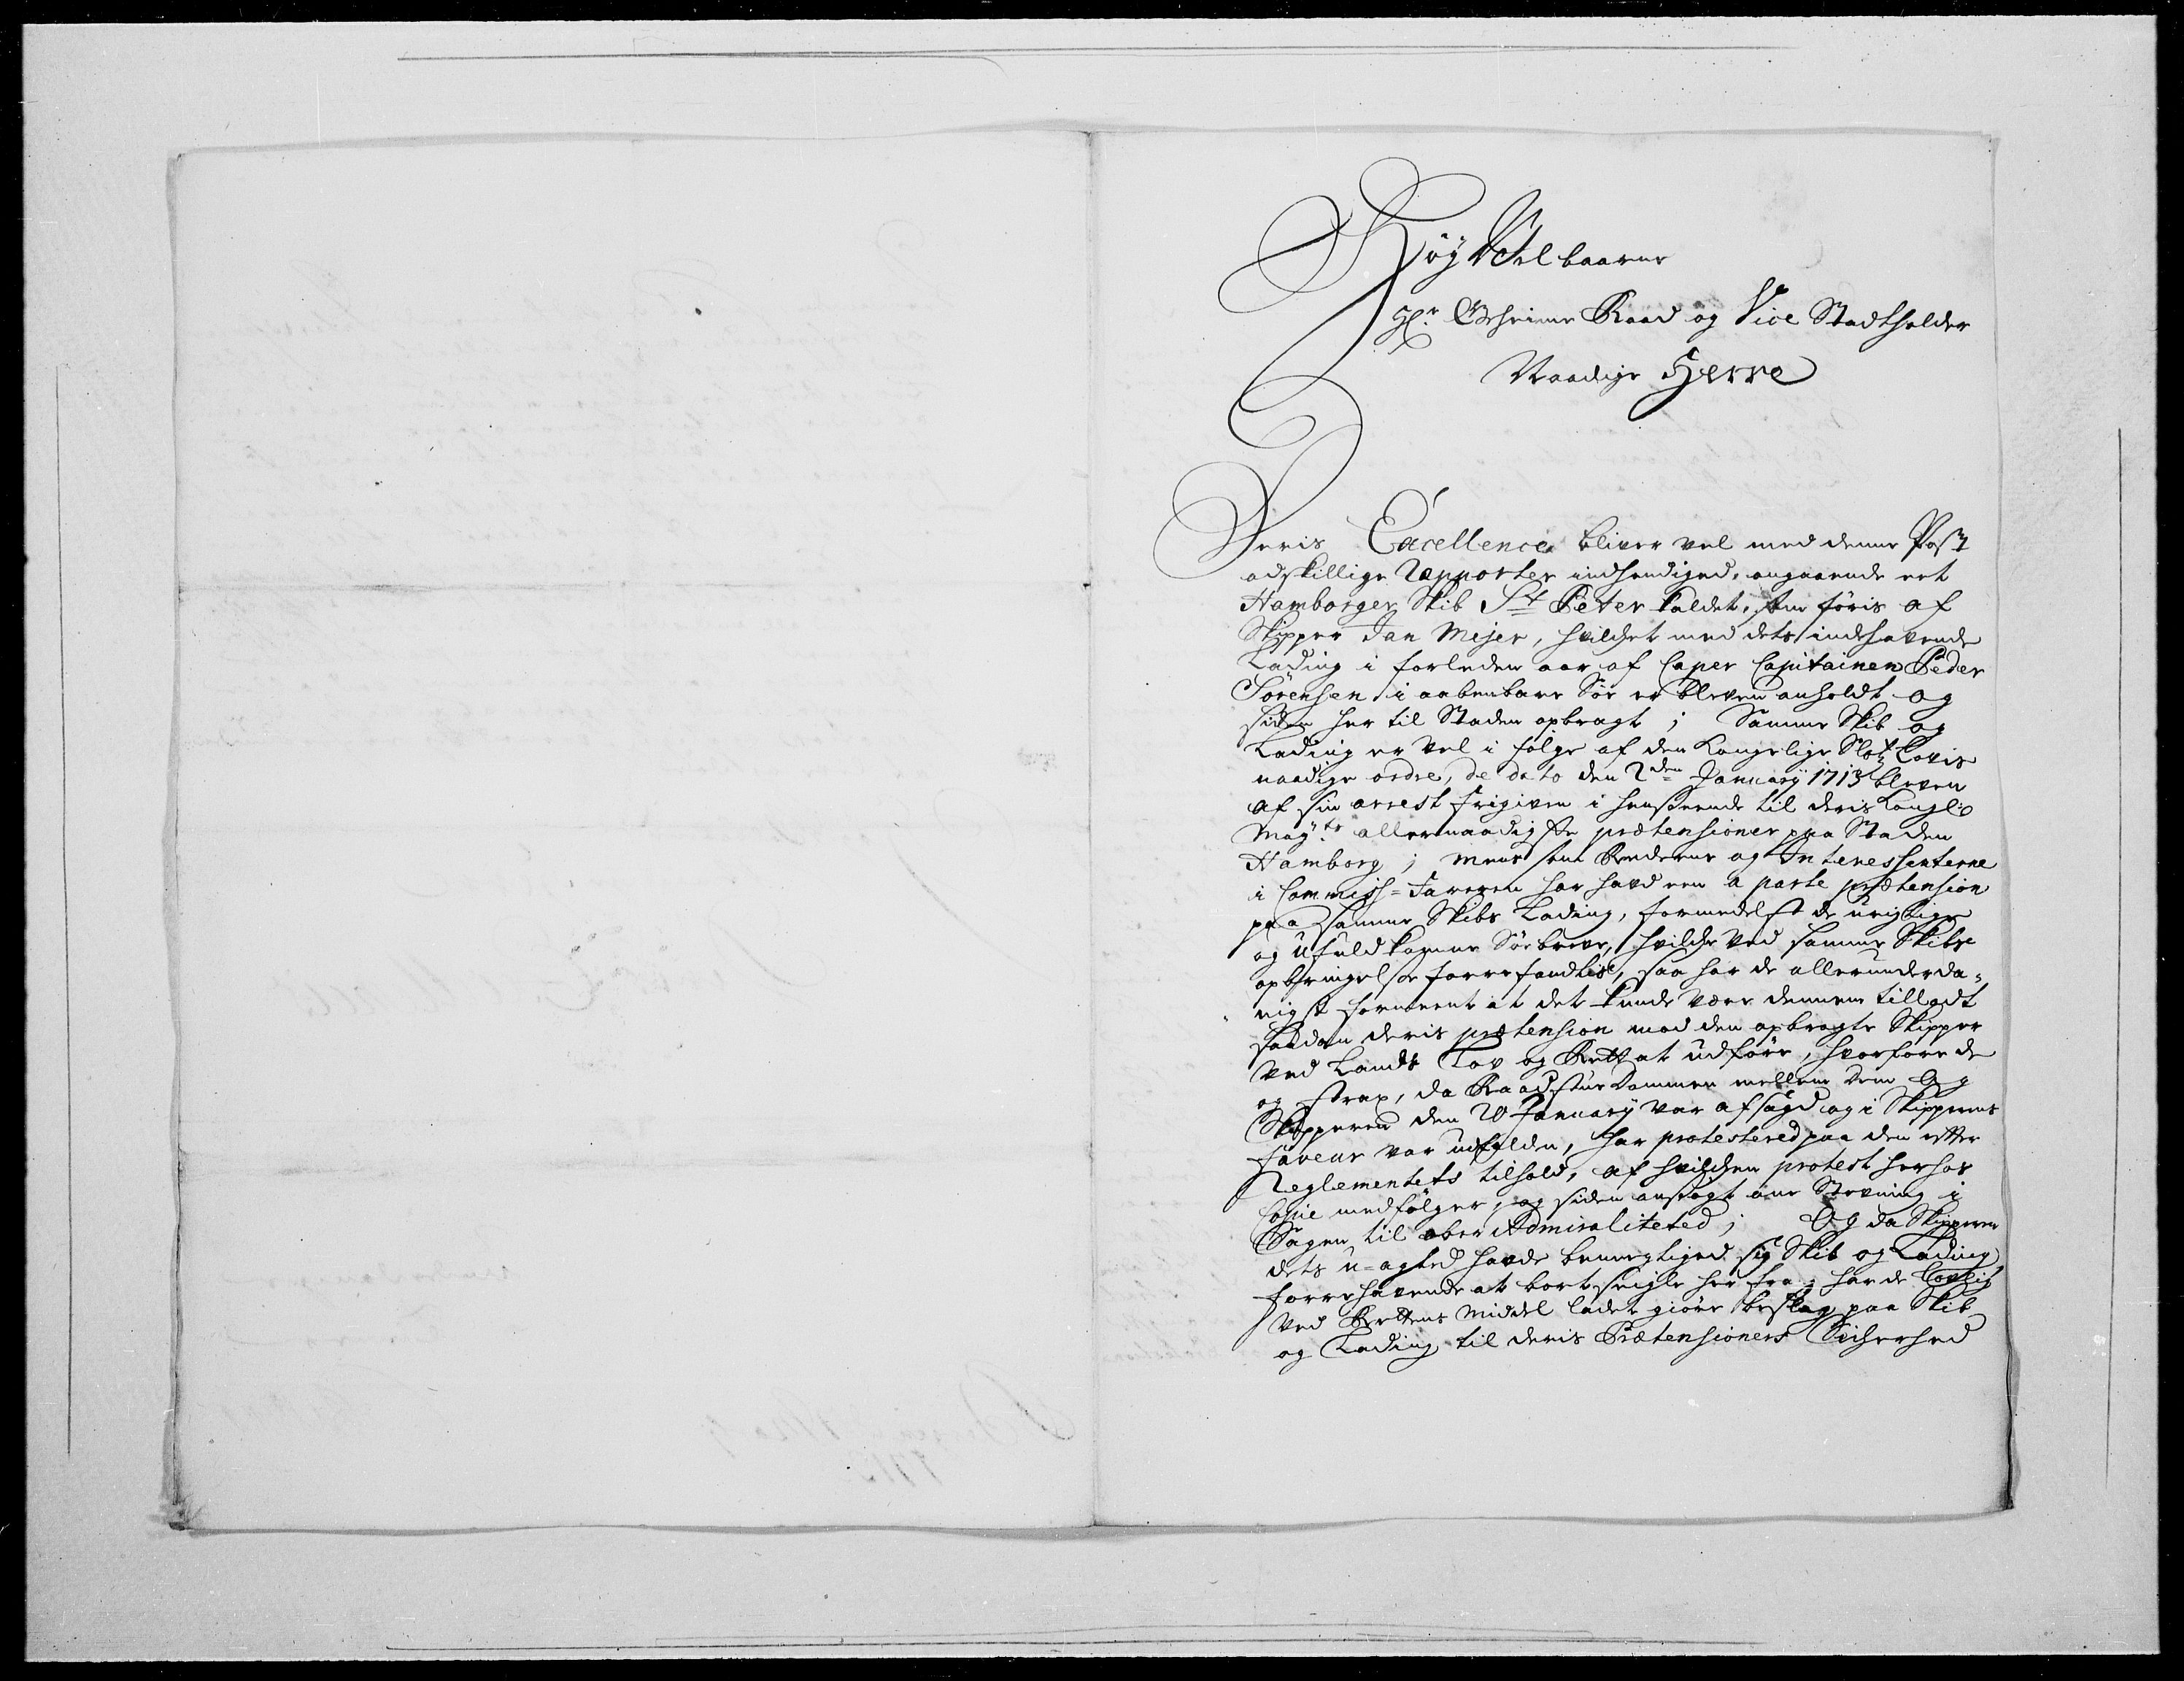 Høy Ædelbaarne
Hr. Geheime Raad og Vice Stadtholder
Naadige Herre
Deris Excellence bliver vel med denne Post
adskillige Rapporter indhendiged, angaaende eet
Hamborger Skib St Peter kaldet, som føris af
Skipper Jan Mejer, hvilchet med dets indehavende
Lading i forleden aar af Caper Capitainen Peder
Sörensen i aabenbare Søe er bleven anholdt og
siden her til Staden opbragt; Samme Skib og
Lading er vel i følge af den Kongelige Slots Lovis
naadige ordre, de dato den 2den January 1713 bleven
af sin arrest frigiven i henseende til deris Kongl:
Mayts allernaadigste prætensioner paa Staden
Hamborg; mens som Rederne og Interessenterne
i Commiss-Fareren har havd een a parte prætension
paa samme Skibs Lading, formedelst de urigtige
og ufuldkomne Søebreve, hvilche ved samme Skibs
opbringelse forrefandtis, saa har de allerunderda-
nigst formeent at det kunde være dennem tilladt
saadan deris prætension mod den opbragte Skipper
ved Lands Lov og Rett at udføre, hvorfore de
og strax, da Raadstue Dommen mellem dem og
Skipperen den 20 January var afsagd og i Skipperens
faveur var udfalden, har protestered paa den efter
Reglementets tilhold, af hvilchen protest herhos
Copie medfølger, og siden ansøgt om Stevning i
Sagen til ober Admiraliteted; Og da Skipperen
dets u-agted havde bemegtiged sig Skib og Lading,
forrehavende at bortseigle her fra; har de Lovlig
ved Rettens Middel ladet giøre beslag paa Skib
og Lading til deris Prætensioners Sicherhed